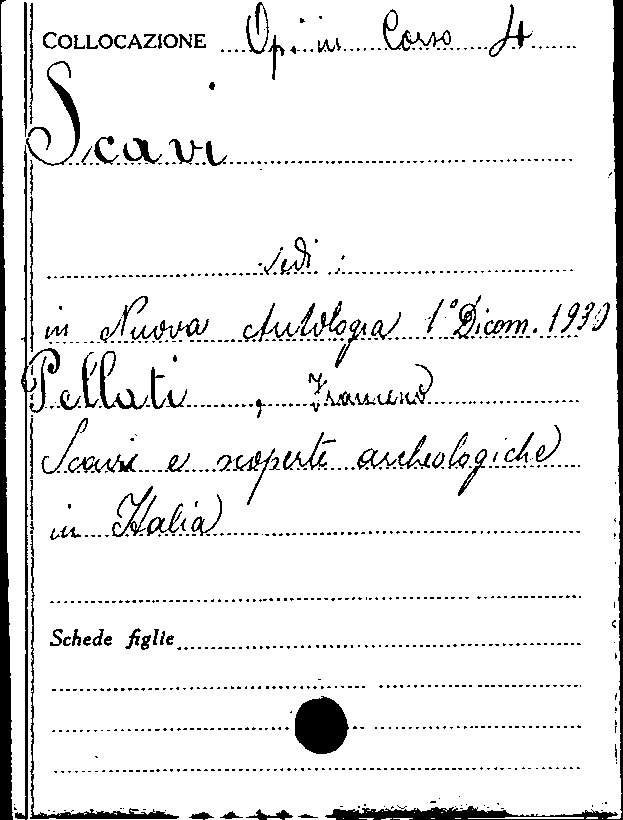 COLLOCAZIONE Op. in Corso 4
Scavi
vedi :
in Nuova Antologia 1° Dicem. 1930
Pellati, Francesco
Scavi e scoperte archeologiche
in Italia
Schede figlie